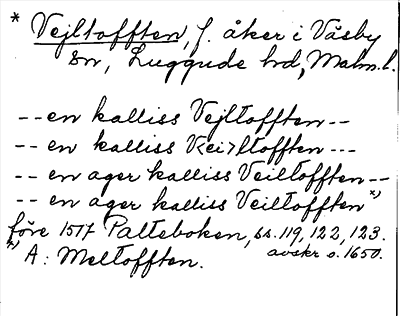 * Vejltofften, f. åker i Väsby
sn, Luggude hd, Malm.l.
-- en kalliss Vejltofften --
-- en kalliss Veiltofften ---
-- en ager kalliss Veiltofften --
-- en ager kalliss Veiltofften *)
före 1517 Palteboken, ss. 119, 122, 123.
avskr o. 1650.
*) A: Meltofften.